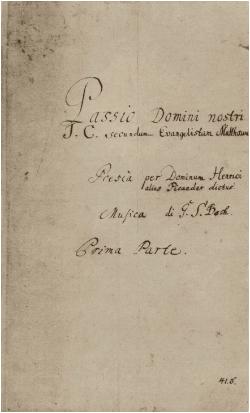 Passio Domini nostri
J. C. secundum Evangelistam Matthaeum
Poesia per Dominum Henrici
alias Picander dictus
Musica di J. S. Bach.
Prima Parte.